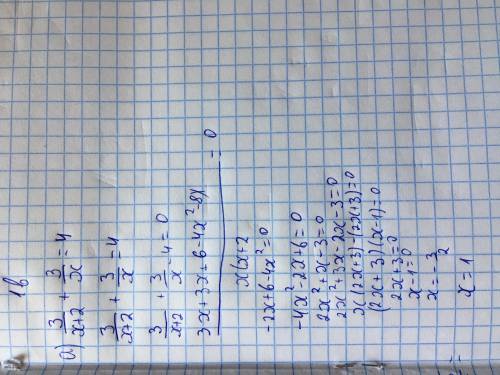 1в
а) 3/(x+2) + 3/x = 4
3/(x+2) + 3/x = 4
3/(x+2) + 3/x - 4 = 0
(3x+3x+6-4x²-8x)/(x(x+2) = 0
-2x+6-4x²=0
-4x²-2x+6=0
2x²+x-3=0
2x²+3x-2x-3=0
x(2x+3)-(2x+3)=0
(2x+3)(x-1)=0
2x+3=0
x-1=0
x=-3/2
x=1